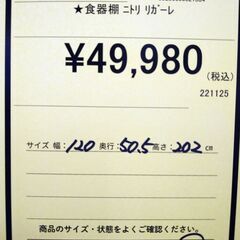 ★食器棚 ニトリ リガーレ
¥49,980
(税込)
221125
サイズ 幅: 120 奥行: 50.5 高さ: 202 cm
商品のサイズ・状態をよくご確認ください。